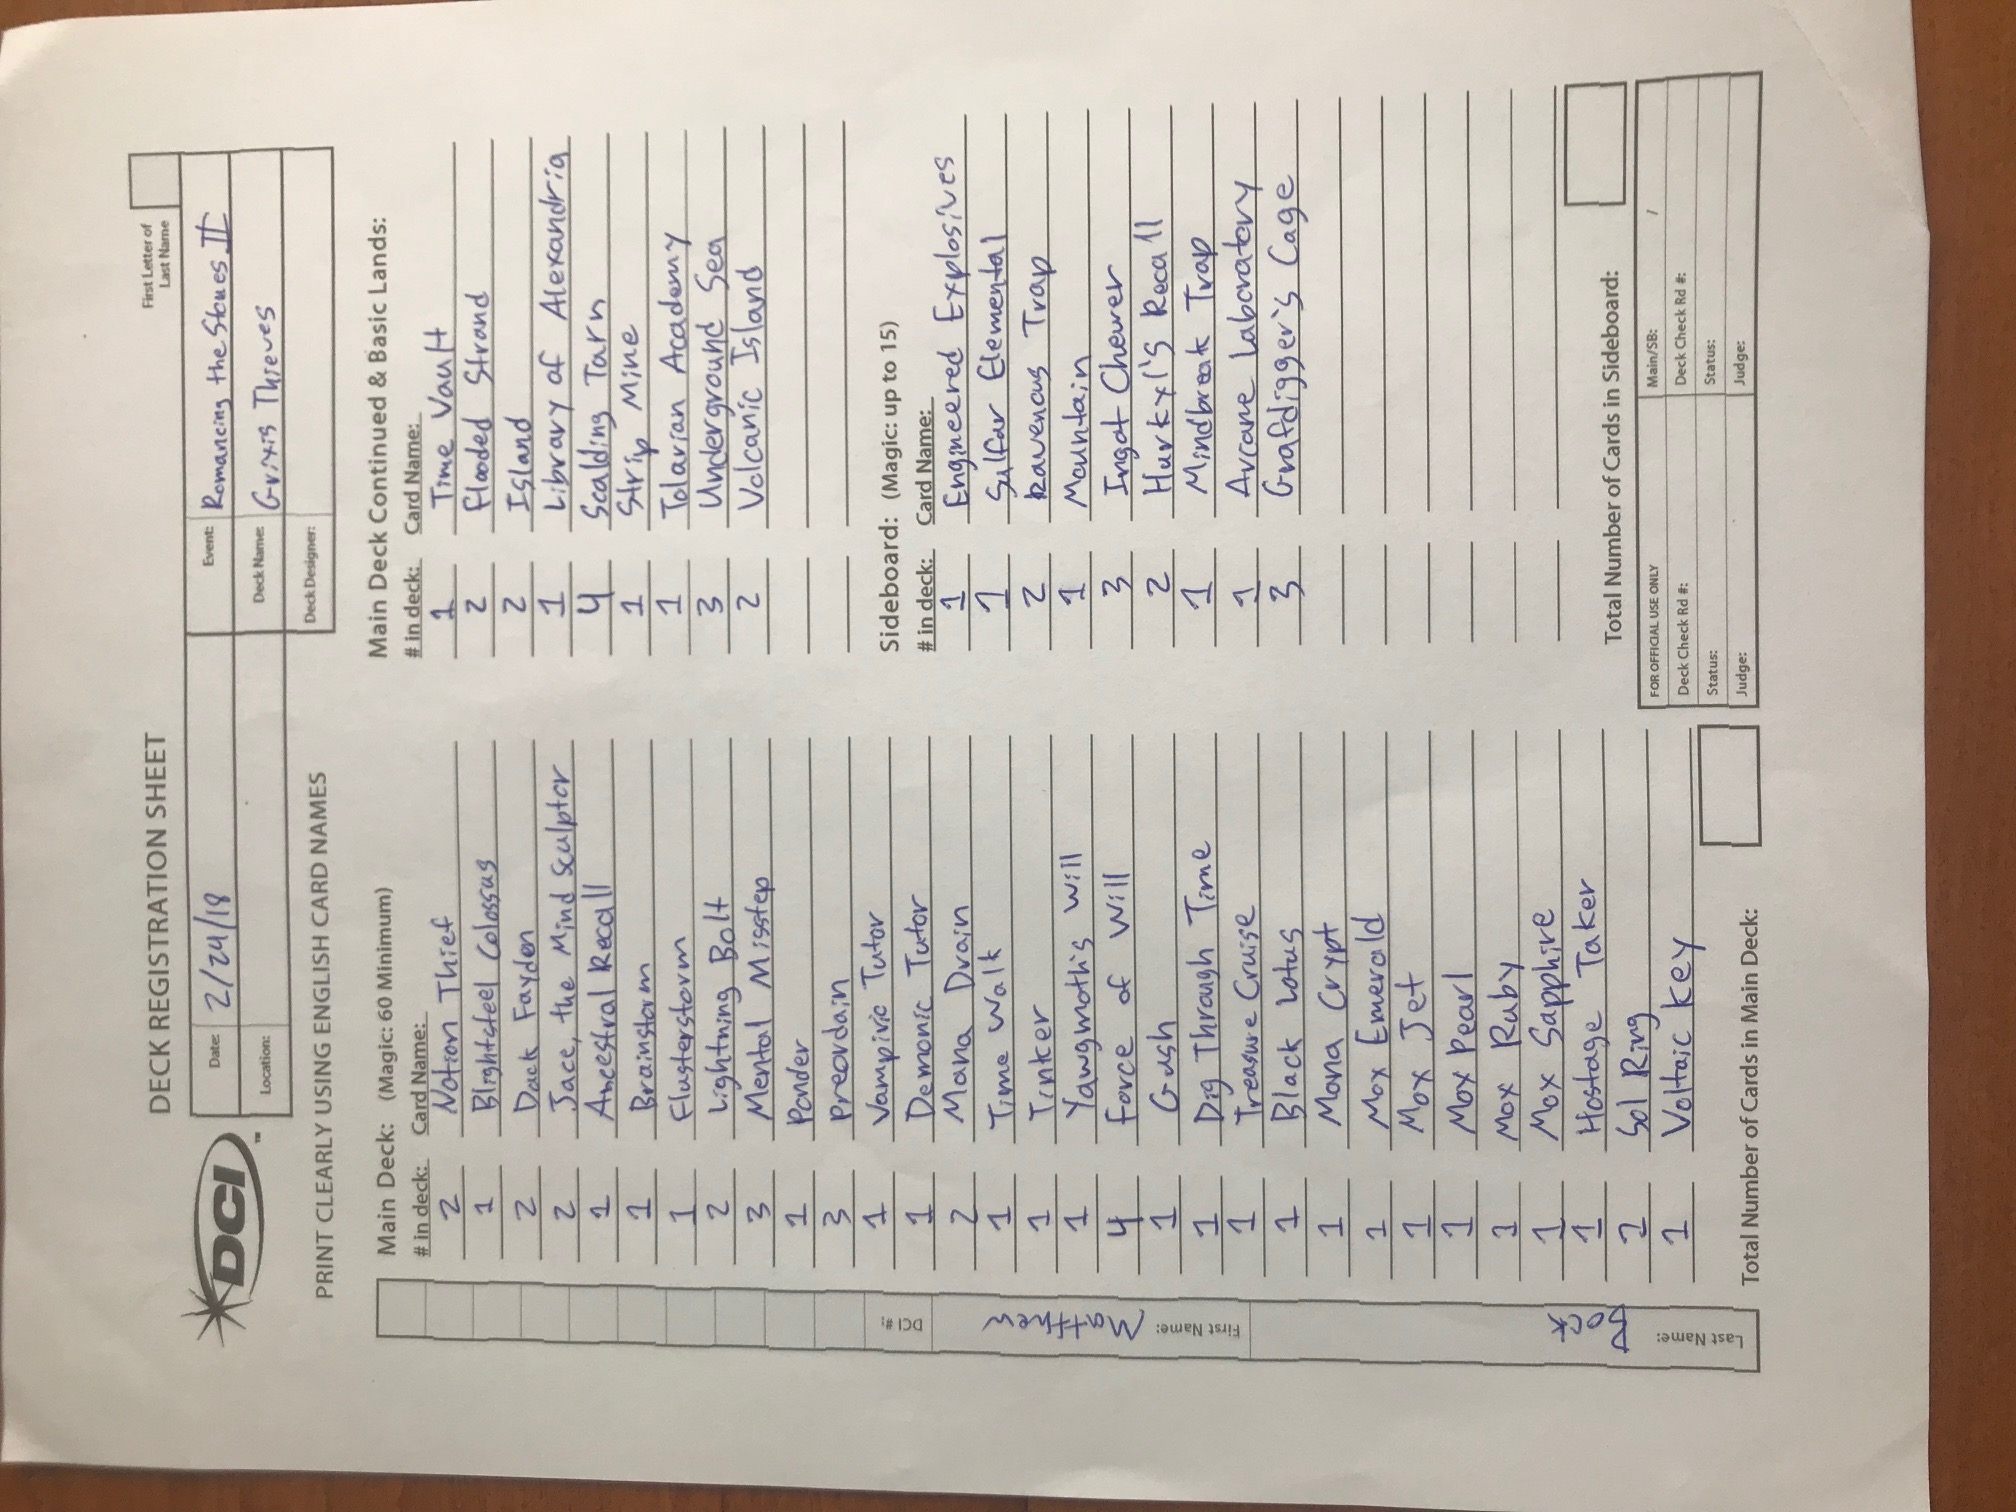 DECK REGISTRATION SHEET
First Letter of
Last Name
DCI
™
Date: 2/24/18
Event: Romancing the Stones II
Location:
Deck Name: Grixis Thieves
Deck Designer:
PRINT CLEARLY USING ENGLISH CARD NAMES
Main Deck: (Magic: 60 Minimum)
# in deck: Card Name:
2 Notion Thief
1 Blightsteel Colossus
2 Dack Fayden
2 Jace, the Mind Sculptor
1 Ancestral Recall
1 Brainstorm
1 Flusterstorm
2 Lightning Bolt
3 Mental Misstep
1 Ponder
3 Preordain
1 Vampiric Tutor
1 Demonic Tutor
2 Mana Drain
1 Time Walk
1 Tinker
1 Yawgmoth's Will
4 Force of Will
1 Gush
1 Dig Through Time
1 Treasure Cruise
1 Black Lotus
1 Mana Crypt
1 Mox Emerald
1 Mox Jet
1 Mox Pearl
1 Mox Ruby
1 Mox Sapphire
1 Hostage Taker
Sol Ring
1 Voltaic Key
Total Number of Cards in Main Deck:
Main Deck Continued & Basic Lands:
# in deck: Card Name:
1 Time Vault
2 Flooded Strand
2 Island
1 Library of Alexandria
4 Scalding Tarn
1 Strip Mine
1 Tolarian Academy
3 Underground Sea
2 Volcanic Island
Sideboard: (Magic: up to 15)
# in deck: Card Name:
1 Engineered Explosives
1 Sulfur Elemental
2 Ravenous Trap
1 Mountain
3 Ingot Chewer
2 Hurkyl's Recall
1 Mindbreak Trap
1 Arcane Laboratory
3 Grafdigger's Cage
Total Number of Cards in Sideboard:
FOR OFFICIAL USE ONLY
Main/SB: /
Deck Check Rd #:
Deck Check Rd #:
Status:
Status:
Judge:
Judge:
DCI #:
First Name: Matthew
Last Name: Bock